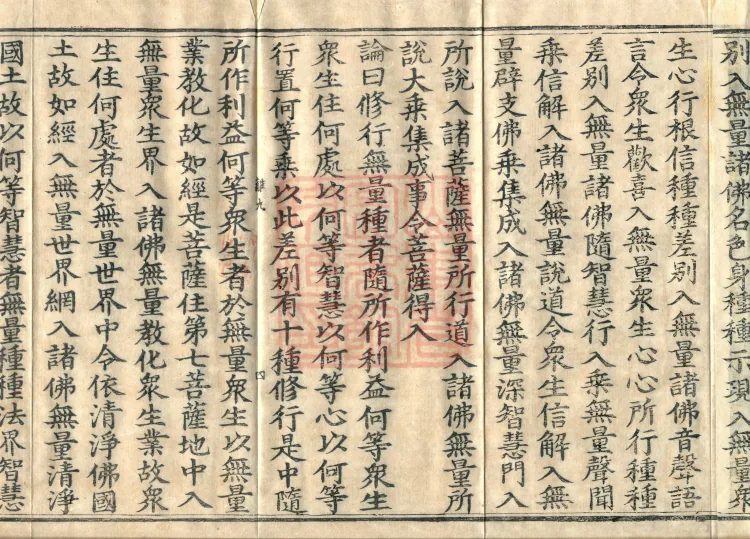 別入無量諸佛名色身種種示現入無量衆
生心行根信種種差別入無量諸佛音聲語
言令衆生歡喜入無量衆生心心所行種種
差別入無量諸佛隨智慧行入乘無量聲聞
乘信解入諸佛無量說道令衆生信解入無
量辟支佛乘集成入諸佛無量深智慧門入
所說入諸菩薩無量所行道入諸佛無量所
說大乘集成事令菩薩得入
論曰修行無量種者隨所作利益何等衆生
衆生住何處以何等智慧以何等心以何等
行置何等乘以此差別有十種修行是中隨
所作利益何等衆生者於無量衆生以無量
業教化故如經是菩薩住第七菩薩地中入
無量衆生界入諸佛無量教化衆生業故衆
生住何處者於無量世界中令依清淨佛國
土故如經入無量世界網入諸佛無量清淨
國土故以何等智慧者無量種種法界智慧